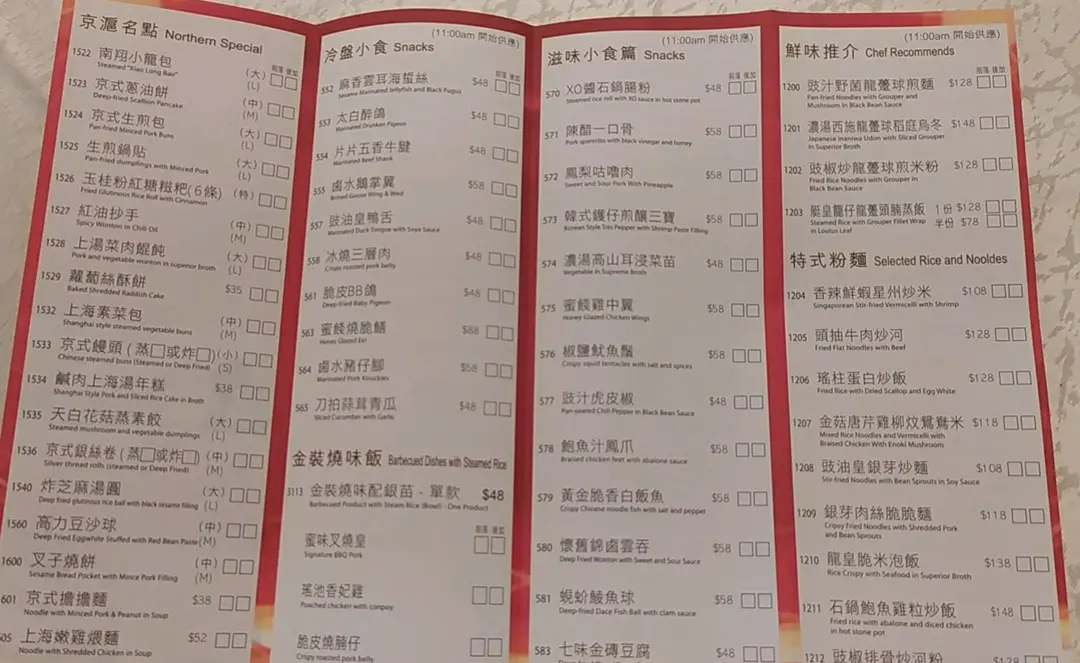 京滬名點 Northern Special
1522 南翔小龍包 (大)
Steamed "Xiao Long Bao" (L)
1523 京式蔥油餅 (中)
Deep-fried Scallion Pancake (M)
1524 京式生煎包 (大)
Pan-fried Minced Pork Buns (L)
1525 生煎鍋貼 (大)
Pan-fried dumplings with Minced Pork (L)
1526 玉桂粉紅糖糍粑(6條) (特)
Fried Glutinous Rice Roll with Cinnamon
1527 紅油抄手 (中)
Spicy Wonton in Chili Oil (M)
1528 上湯菜肉餛飩 (大)
Pork and vegetable wonton in superior broth (L)
1529 蘿蔔絲酥餅 $35
Baked Shredded Raddish Cake
1532 上海素菜包 (中)
Shanghai style steamed vegetable buns (M)
1533 京式饅頭(蒸□或炸□) (小)
Chinese steamed buns (Steamed or Deep Fried) (S)
1534 鹹肉上海湯年糕 $38
Shanghai Style Pork and Sliced Rice Cake in Broth
1535 天白花菇蒸素餃 (大)
Steamed mushroom and vegetable dumplings (L)
1536 京式銀絲卷(蒸□或炸□) (中)
Silver thread rolls (steamed or Deep Fried) (M)
1540 炸芝麻湯圓 (大)
Deep fried glutinous rice ball with black sesame filling (L)
1560 高力豆沙球 (中)
Deep Fried Eggwhite Stuffed with Red Bean Paste (M)
1600 叉子燒餅 (中)
Sesame Bread Pocket with Mince Pork Filling (M)
601 京式擔擔麵 $38
Noodle with Minced Pork & Peanut in Soup
605 上海嫩雞煨麵 $52
Noodle with Shredded Chicken in Soup
(11:00am 開始供應)
冷盤小食 Snacks
552 麻香雲耳海蜇絲 $48
Sesame Marinated Jellyfish and Black Fugus
553 太白醉鴿 $48
Marinated Drunken Pigeon
554 片片五香牛腱 $48
Marinated Beef Shank
555 鹵水鵝掌翼 $58
Brised Goose Wing & Wed
557 豉油皇鴨舌 $48
Marinated Duck Tongue with Soya Sauce
558 冰燒三層肉 $48
Crispy roasted pork belly
561 脆皮BB鴿 $48
Deep-fried Baby Pigeon
563 蜜餞燒脆鱔 $68
Honey Glazed Eel
564 鹵水豬仔腳 $58
Marinated Pork Knuckles
565 刀拍蒜茸青瓜 $48
Sliced Cucumber with Garlic
金裝燒味飯 Barbecued Dishes with Steamed Rice
3113 金裝燒味配銀苗 - 單款 $48
Barbecued Product with Steam Rice (Bowl) - One Product
蜜味叉燒皇
Signature BBQ Pork
瑤池香妃雞
Poached chicken with conpoy
脆皮燒腩仔
Crispy roasted pork belly
(11:00am 開始供應)
滋味小食篇 Snacks
570 XO醬石鍋腸粉 $48
Steamed rice roll with XO sauce in hot stone pot
571 陳醋一口骨 $58
Pork spareribs with black vinegar and honey
572 鳳梨咕嚕肉 $58
Sweet and Sour Pork With Pineapple
573 韓式鑊仔煎釀三寶 $58
Korean Style Trio Pepper with Shrimp Paste Filling
574 濃湯高山耳浸菜苗 $48
Vegetable in Supreme Broth
575 蜜餞雞中翼 $58
Honey Glazed Chicken Wings
576 椒鹽魷魚鬚 $58
Crispy squid tentacles with salt and spices
577 豉汁虎皮椒 $48
Pan-seared Chili Pepper in Black Bean Sauce
578 鮑魚汁鳳爪 $58
Braised chicken feet with abalone sauce
579 黃金脆香白飯魚 $58
Crispy Chinese noodle fish with salt and pepper
580 懷舊錦鹵雲吞 $58
Deep Fried Wonton with Sweet and Sour Sauce
581 蜆蚧鯪魚球 $58
Deep-fried Dace Fish Ball with clam sauce
583 七味金磚豆腐 $48
(11:00am 開始供應)
鮮味推介 Chef Recommends
1200 豉汁野菌龍躉球煎麵 $128
Pan-fried Noodles with Grouper and
Mushroom in Black Bean Sauce
1201 濃湯西施龍躉球稻庭烏冬 $148
Japanese Inaniwa Udon with Sliced Grouper
in Superior Broth
1202 豉椒炒龍躉球煎米粉 $128
Fried Rice Noodles with Grouper in
Black Bean Sauce
1203 艇皇籠仔龍躉頭腩蒸飯 1份 $128
Steamed Rice with Grouper Fillet Wrap 半份 $78
in Loutus Leaf
特式粉麵 Selected Rice and Nooldes
1204 香辣鮮蝦星州炒米 $108
Singaporean Stir-fried Vermicelli with Shrimp
1205 頭抽牛肉炒河 $128
Fried Flat Noodles with Beef
1206 瑤柱蛋白炒飯 $128
Fried Rice with Dried Scallop and Egg White
1207 金菇唐芹雞柳炆鴛鴦米 $118
Mixed Rice Noodles and Vermicelli with
Braised Chicken With Enoki Mushroom
1208 豉油皇銀芽炒麵 $108
Stir-fried Noodles with Bean Sprouts in Soy Sauce
1209 銀芽肉絲脆脆麵 $118
Cripsy Fried Noodles with Shredded Pork
and Bean Sprouts
1210 龍皇脆米泡飯 $138
Rice Crispy with Seafood in Superior Broth
1211 石鍋鮑魚雞粒炒飯 $148
Fried rice with abalone and diced chicken
in hot stone pot
1212 豉椒排骨炒河粉 $128